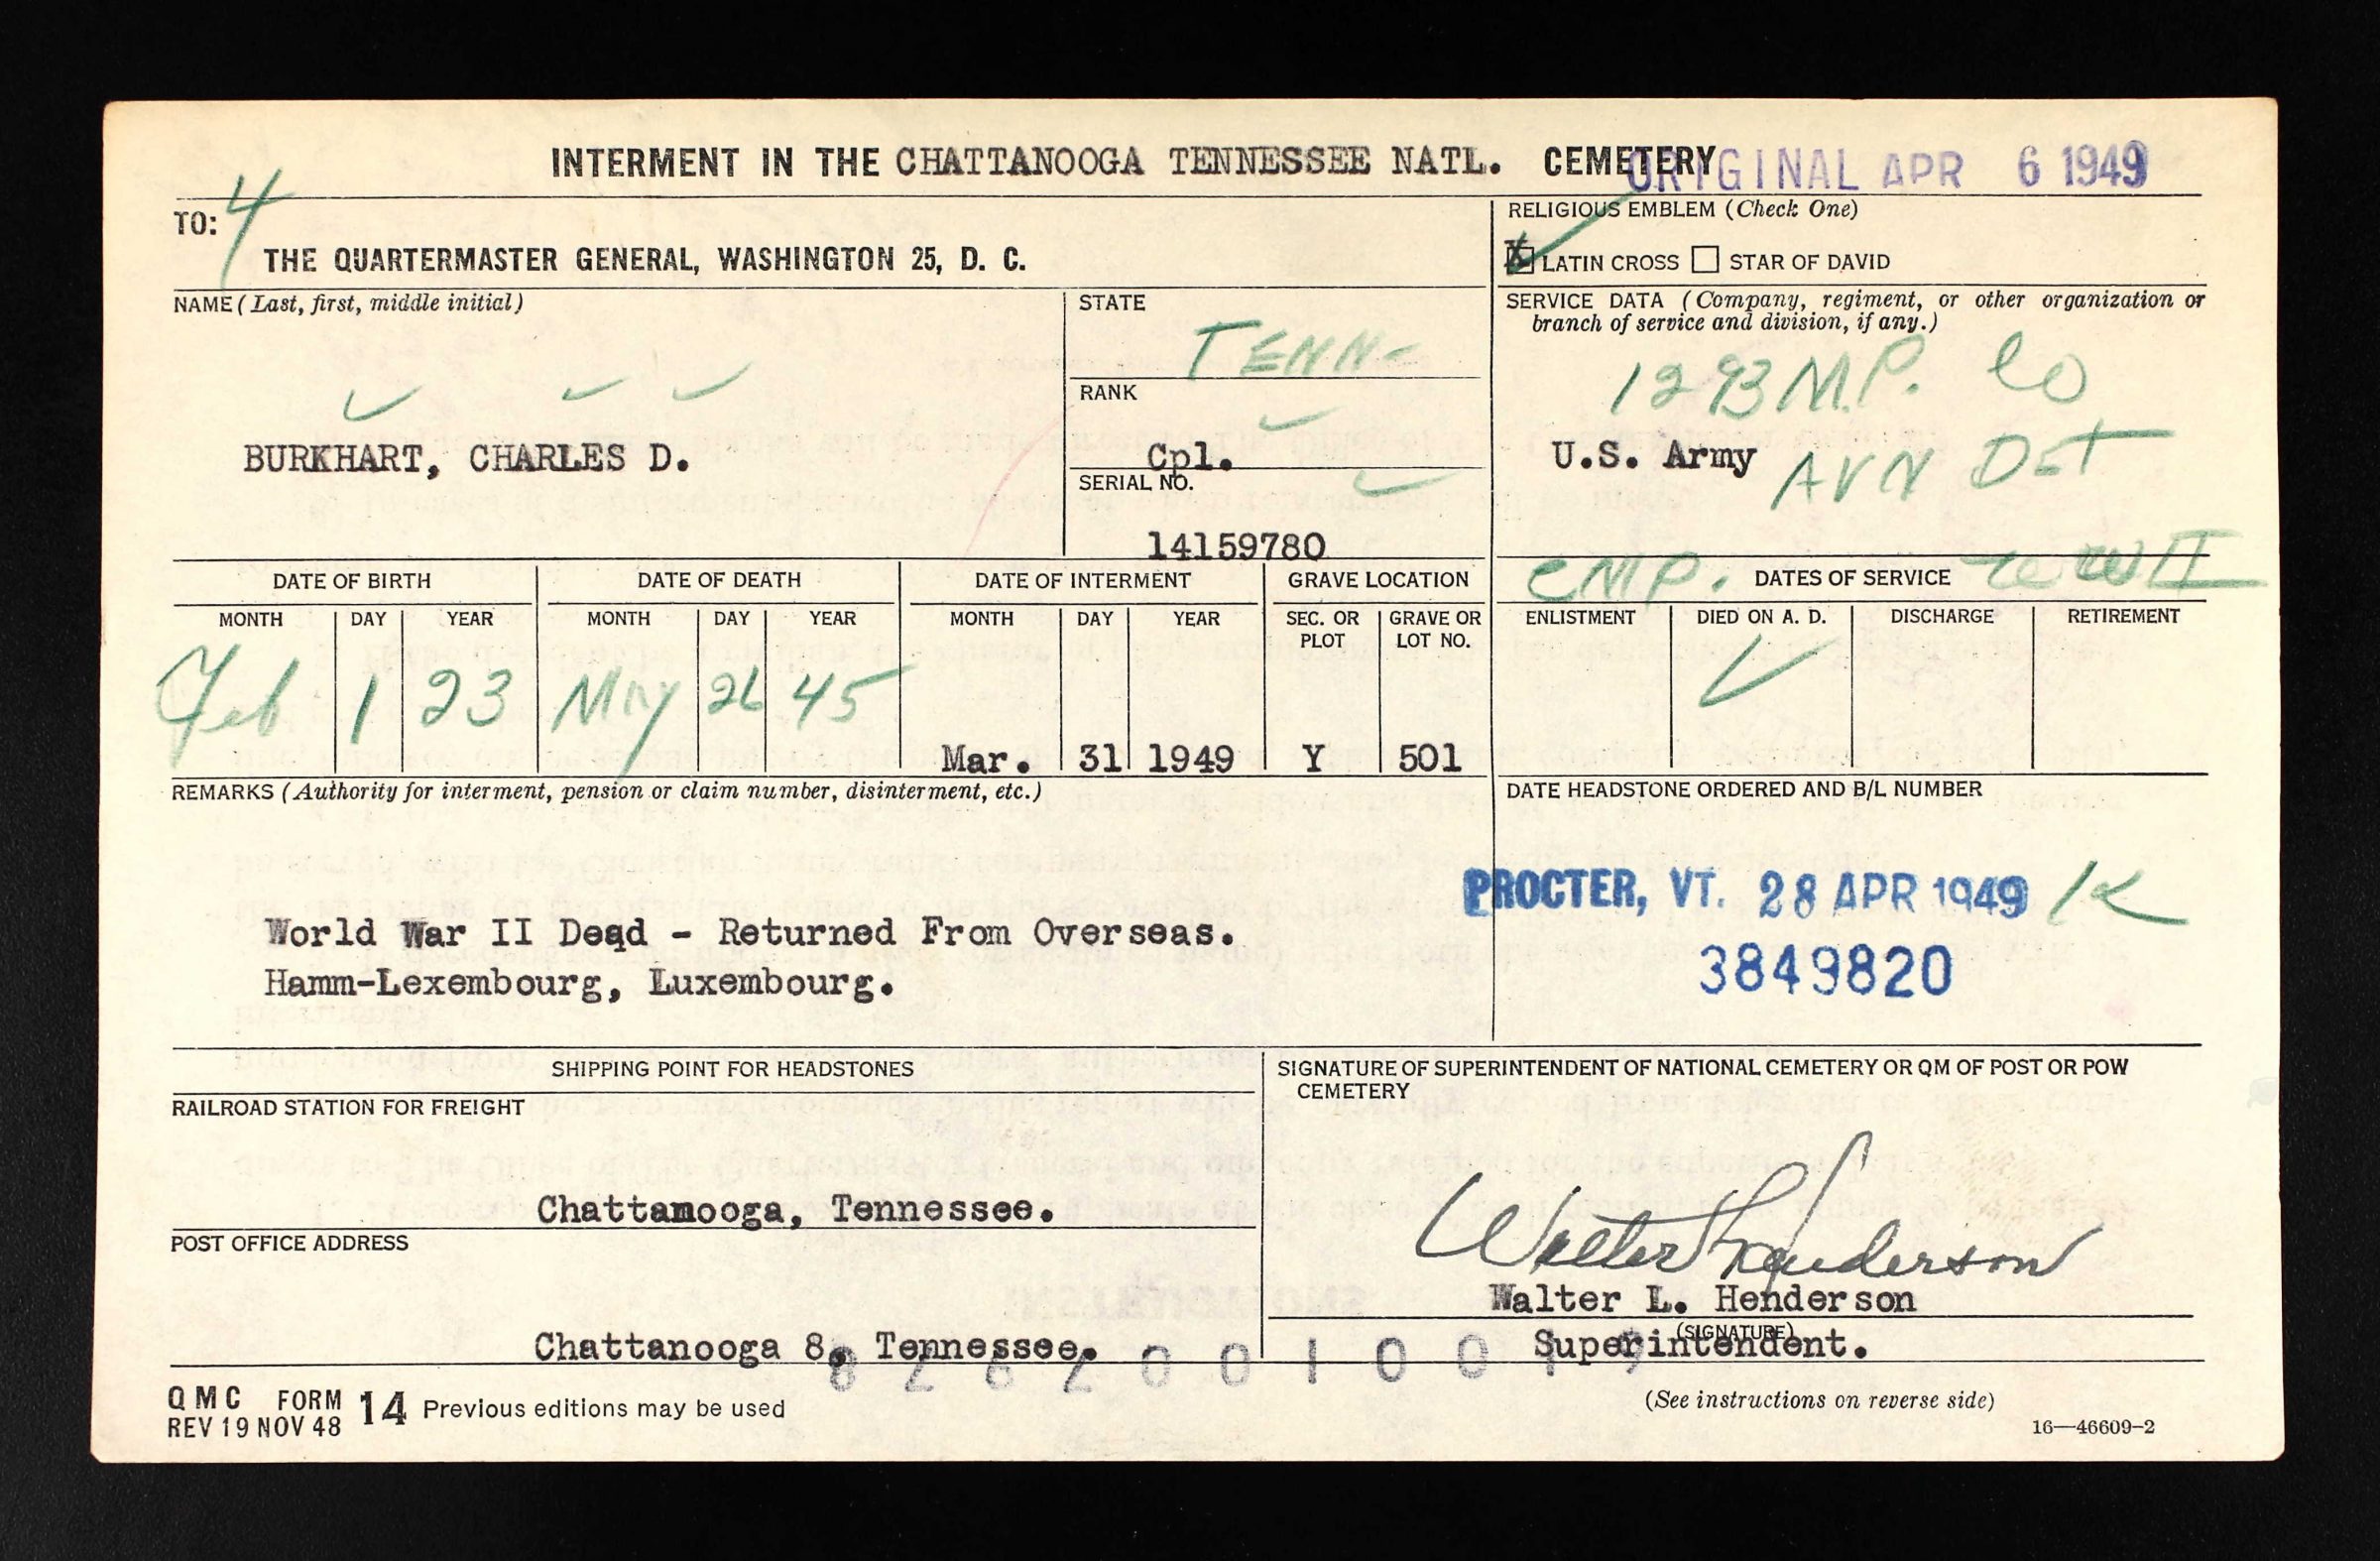 INTERMENT IN THE CHATTANOOGA TENNESSEE NATL. CEMETERY
ORIGINAL APR 6 1949
TO:
4
THE QUARTERMASTER GENERAL, WASHINGTON 25, D. C.
RELIGIOUS EMBLEM (Check One)
X LATIN CROSS STAR OF DAVID
NAME (Last, first, middle initial)
BURKHART, CHARLES D.
STATE
TENN-
RANK
Cpl.
SERIAL NO.
14159780
SERVICE DATA (Company, regiment, or other organization or
branch of service and division, if any.)
1293 M.P. Co
U.S. Army AVN Det
CMP. WWII
DATE OF BIRTH
MONTH DAY YEAR
Feb 1 23
DATE OF DEATH
MONTH DAY YEAR
May 26 45
DATE OF INTERMENT
MONTH DAY YEAR
Mar. 31 1949
GRAVE LOCATION
SEC. OR PLOT
GRAVE OR LOT NO.
Y 501
DATES OF SERVICE
ENLISTMENT DIED ON A. D. DISCHARGE RETIREMENT
REMARKS (Authority for interment, pension or claim number, disinterment, etc.)
World War II Dead - Returned From Overseas.
Hamm-Lexembourg, Luxembourg.
DATE HEADSTONE ORDERED AND B/L NUMBER
PROCTER, VT. 28 APR 1949 K
3849820
SHIPPING POINT FOR HEADSTONES
RAILROAD STATION FOR FREIGHT
Chattanooga, Tennessee.
POST OFFICE ADDRESS
Chattanooga 8, Tennessee.
SIGNATURE OF SUPERINTENDENT OF NATIONAL CEMETERY OR QM OF POST OR POW
CEMETERY
Walter L Henderson
Walter L. Henderson
(SIGNATURE)
Superintendent.
QMC FORM 14 Previous editions may be used
REV 19 NOV 48
(See instructions on reverse side)
16—46609-2